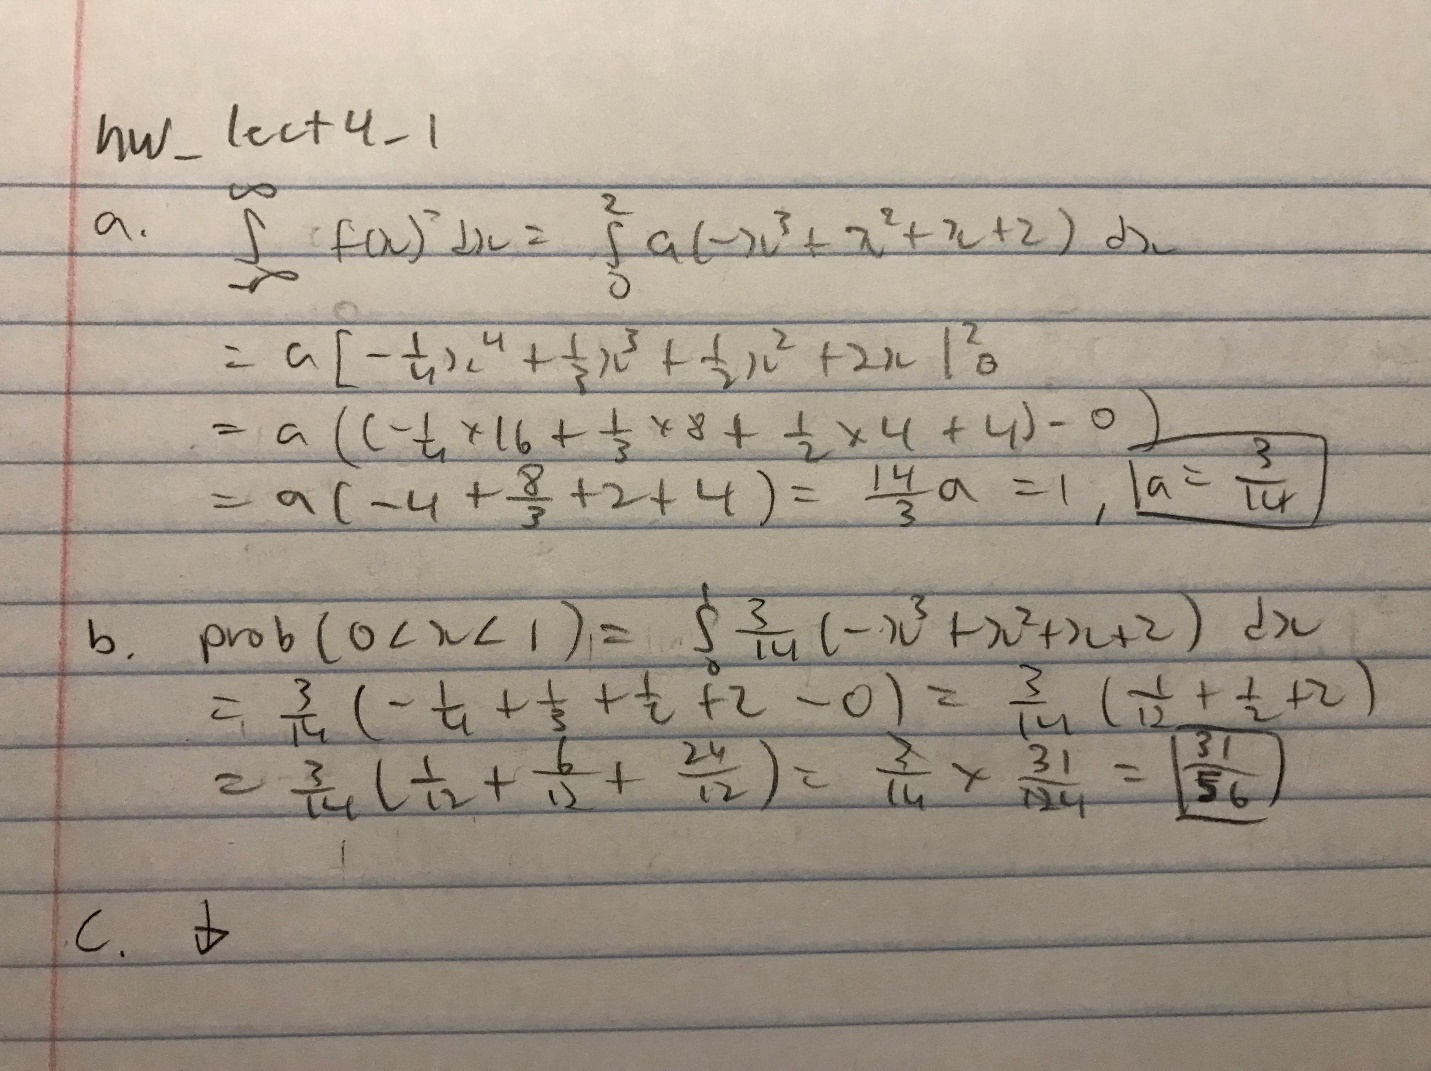 hw_lect4_1
a. ∫_{-∞}^{∞} f(x) dx = ∫_0^2 a(-x³ + x² + x + 2) dx
= a [-1/4 x⁴ + 1/3 x³ + 1/2 x² + 2x |_0^2
= a ((-1/4 × 16 + 1/3 × 8 + 1/2 × 4 + 4) - 0)
= a (-4 + 8/3 + 2 + 4) = 14/3 a = 1, a = 3/14
b. prob (0 < x < 1) = ∫_0^1 3/14 (-x³ + x² + x + 2) dx
= 3/14 (-1/4 + 1/3 + 1/2 + 2 - 0) = 3/14 (1/12 + 1/2 + 2)
= 3/14 (1/12 + 6/12 + 24/12) = 3/14 × 31/124 = 31/56
C. ↓